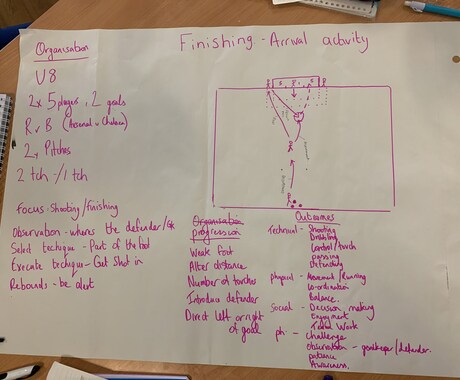 Finishing - Arrival activity
Organisation
U8
2x 5 players, 2 goals
R v B (Arsenal v Chelsea)
2 Pitches
2 tch / 1 tch
Focus: Shooting/finishing
Observation - wheres the defender/Gk
Select techique - Part of the foot
Execute techique - Get Shot in
Rebounds - be alert
Organisation
progression
Weak foot
Alter distance
Number of touches
Introduce defender
Direct left or right
of goal
Outcomes
Technical - Shooting
Dribbling
Control/touch
passing
defending
physical - Movement/Running
Co-ordination
Balance.
Social - Decision making
Enjoyment
Team Work
ph - Challenge
Observation - goalkeeper/defender.
patience
Awareness.